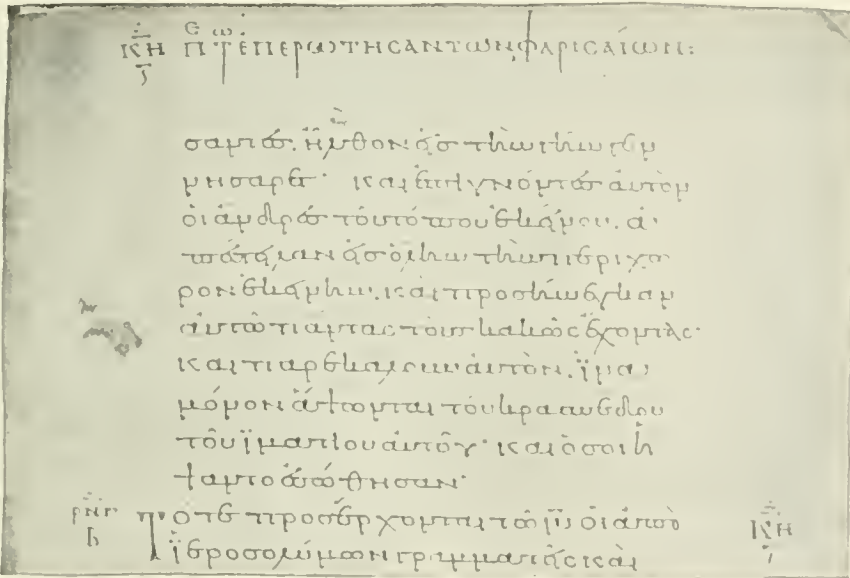 ΚΗ Π Τ ΕΠΕΡΩΤΗΣΑΝΤΩΝ ΦΑΡΙΣΑΙΩΝ:
σαντες. ἦλθον εἰς τὴν γῆν γεν
νησαρετ· καὶ ἐπιγνόντες αὐτὸν
οἱ ἄνδρες τοῦ τόπου ἐκείνου. ἀ
πέστειλαν εἰς ὅλην τὴν περίχω
ρον ἐκείνην. καὶ προσήνεγκαν
αὐτῶ πάντας τοὺς κακῶς ἔχοντας·
καὶ παρεκάλουν αὐτὸν. ἵνα
μόνον ἅψωνται τοῦ κρασπέδου
τοῦ ϊματίου αὐτοῦ· καὶ ὅσοι ἥ
ψαντο ἐσώθησαν·
Τότε προσέρχονται τῶ ιυ οἱ ἀπὸ ΚΗ
ϊεροσολύμων γραμματεῖς καὶ